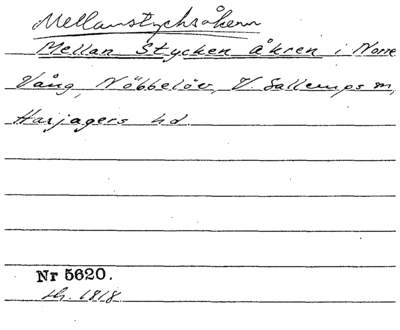 Mellanstycksåkern
Mellan Stycken åkren i Norre
Vång, Nöbbelöv, V. Sallerups sn,
Harjagers hd
Nr 5620.
1818